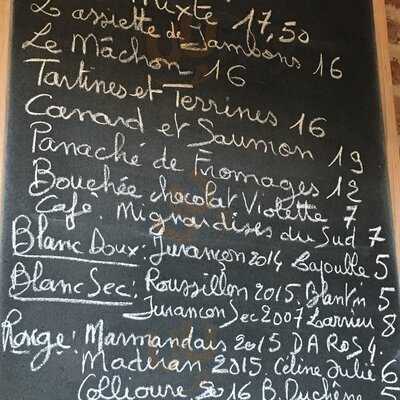 Mixte 17,50
L'assiette de Jambons 16
Le Mâchon 16
Tartines et Terrines 16
Canard et Saumon 19
Panaché de Fromages 12
Bouchée chocolat Violette 7
Café. Mignardises du Sud 7
Blanc Doux: Jurançon 2014 Lapoulle 5
Blanc Sec: Roussillon 2015. 5
Jurançon Sec 2007 Larrieu 8
Rouge: Marmandais 2015 DA ROS 4.
Madiran 2015. Céline Julie 6
Collioure 2016 B. Duchêne 5